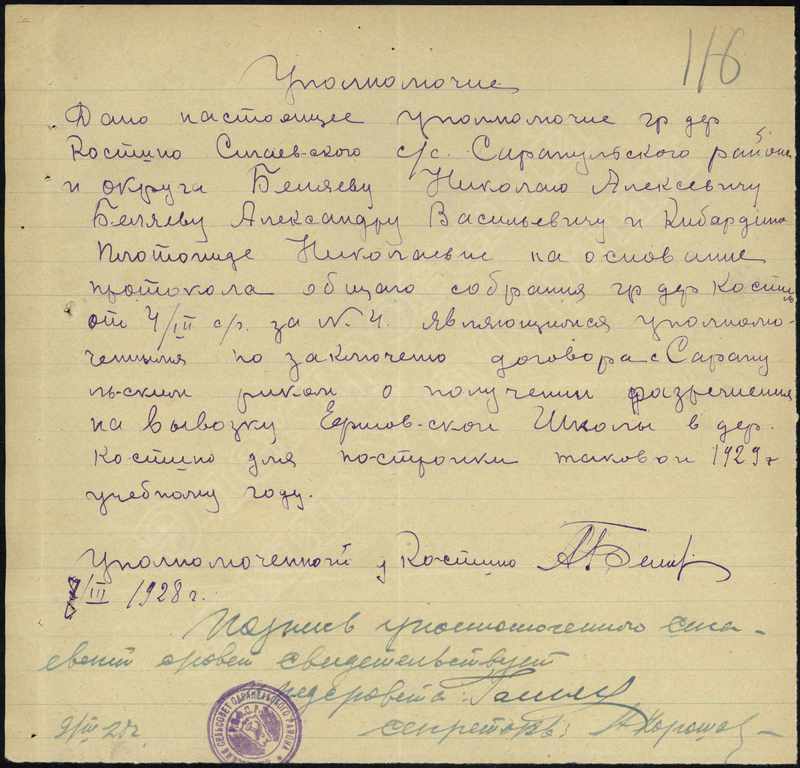 116
Уполномочие
Дано настоящее уполномочие гр дер
Костино Сигаев-ского с/с. Сарапульского района
и округа Беляеву Николаю Алексевичу
Беляеву Александру Васильевичу и Кибардин
Николаевне на основание
протокола общаго собрания гр дер Костин
от 4/III с/г. за №4. являющимся уполномо-
ченимя по заключето договора с Сарапу
льским риком о получении разрешения
на вывозку Ершов-ской Школы в дер.
Костино для по-стройки таковой 1929 г
учебному году.
Уполномоченной д Костино А Беляев
/III 1928 г.
Подпись уполномоченного сига-
евский совет свидетельствует
Предсовета
9/III-28 г. секретарь: Хорошав
СЕЛЬСОВЕТ САРАПУЛЬСКОГО РАЙОНА